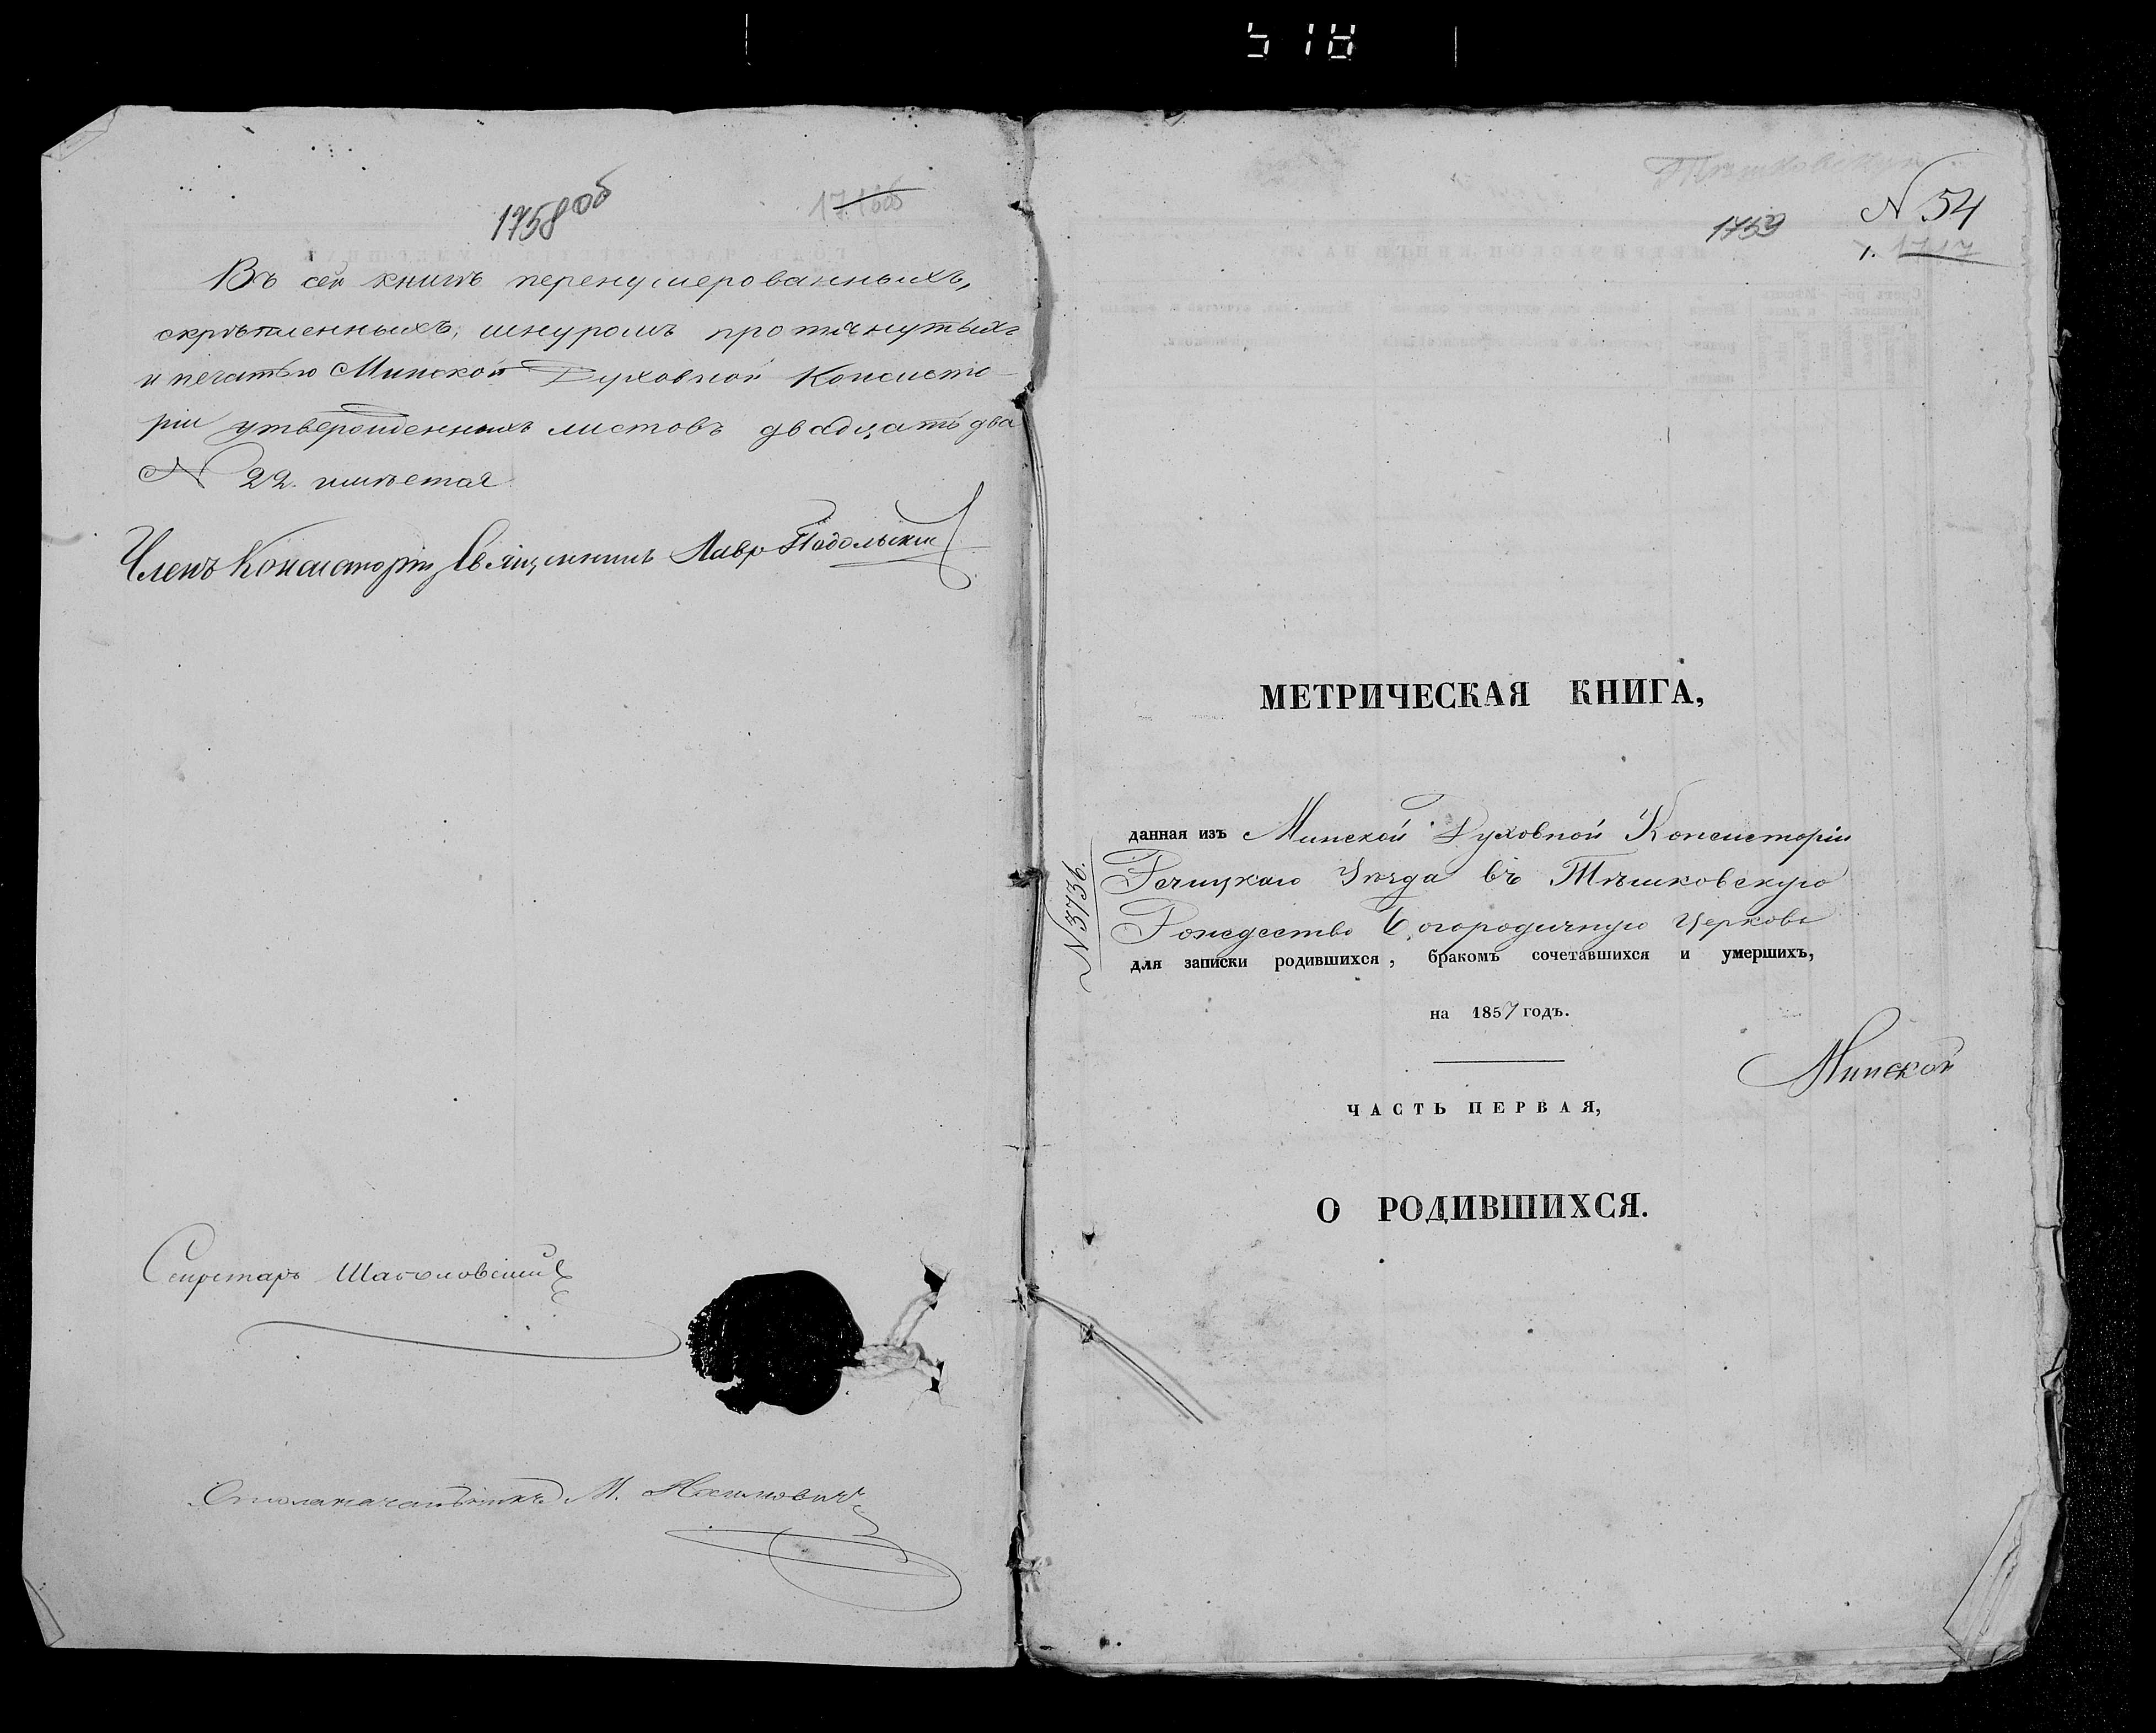 518
1758 об
Въ сей книгѣ перенумерованныхъ,
скрѣпленныхъ, шнуромъ протянутыхъ
и печатью Минской Духовной Консисто-
ріи утвержденныхъ листовъ двадцать два
N 22. имѣется
Членъ Консисторіи Священникъ Лавръ Подольскій
Секретарь
Столоначальникъ М.
N 54
1759
1717
МЕТРИЧЕСКАЯ КНИГА,
данная изъ Минской Духовной Консисторіи
Речицкаго Уѣзда въ Тѣшковскую
Рождество Богородичную Церковь
N 3736.
для записки родившихся, бракомъ сочетавшихся и умершихъ,
на 1857 годъ.
Минской
ЧАСТЬ ПЕРВАЯ,
О РОДИВШИХСЯ.